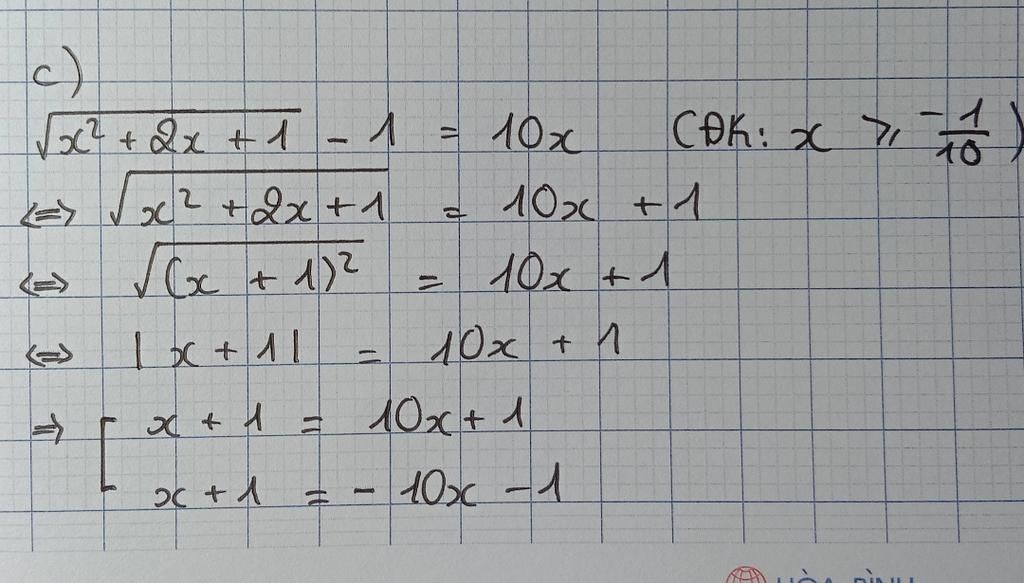 c)
√(x² + 2x + 1) - 1 = 10x (ĐK: x ⩾ -1/10)
<=> √(x² + 2x + 1) = 10x + 1
<=> √((x + 1)²) = 10x + 1
<=> |x + 1| = 10x + 1
=> [ x + 1 = 10x + 1
x + 1 = - 10x - 1
HÒA BÌNH